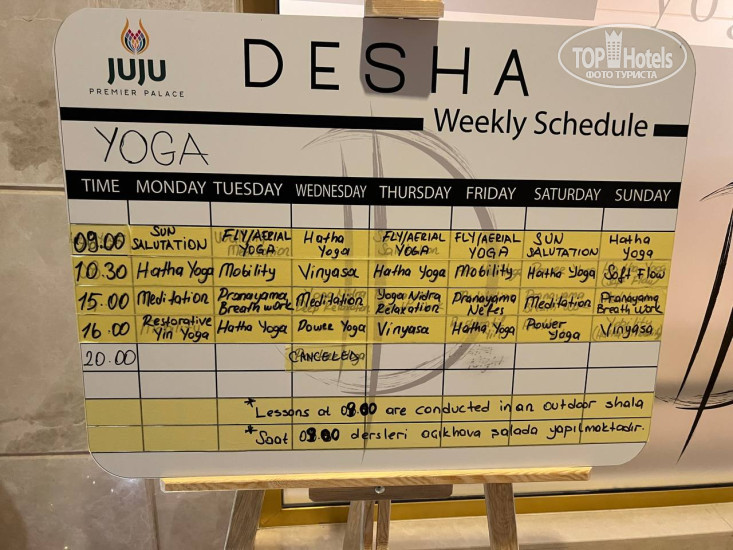 JUJU
PREMIER PALACE
DESHA
TOP Hotels
ФОТО ТУРИСТА
Weekly Schedule
YOGA
TIME MONDAY TUESDAY WEDNESDAY THURSDAY FRIDAY SATURDAY SUNDAY
09.00 SUN SALUTATION FLY/AERIAL YOGA Hatha Yoga FLY/AERIAL YOGA FLY/AERIAL YOGA SUN SALUTATION Hatha Yoga
10.30 Hatha Yoga Mobility Vinyasa Hatha Yoga Mobility Hatha Yoga Soft Flow
15.00 Meditation Pranayama Breath work Meditation Yoga Nidra Relaxation Pranayama Meditation Pranayama Breath work
16.00 Restorative Yin Yoga Hatha Yoga Power Yoga Vinyasa Hatha Yoga Power Yoga Vinyasa
20.00 CANCELED
*Lessons at 09.00 are conducted in an outdoor shala
*Saat 09.00 dersleri acikhava salada yapılmaktadır.